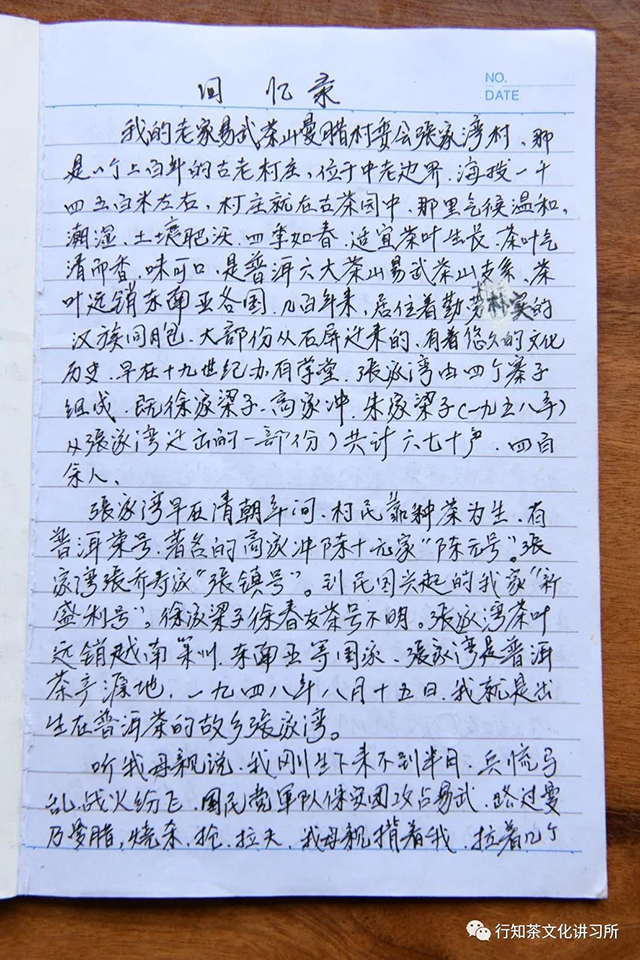 NO.
DATE
回 忆 录
我的老家易武茶山曼腊村委会張家湾村、那
是一个上百年的古老村庄、位于中老边界、海拔一千
四五百米左右，村庄就在古茶园中、那里气候温和，
潮湿、土壤肥沃、四季如春、适宜茶叶生长、茶叶气
清而香、味可口、是普洱六大茶山易武茶山支系、茶
叶远销东南亚各国、几百年来，居住着勤劳朴实的
汉族同胞、大部份从石屏迁来的、有着悠久的文化
历史、早在十九世纪办有学堂、張家湾由四个寨子
组成、既徐家梁子、高家冲、朱家梁子(一九五八年
从張家湾迁出的一部份)共计六七十户、四百
余人、
張家湾早在清朝年间、村民靠种茶为生、有
普洱茶号、著名的高家冲陈十元家“陈元号”。張
家湾張乔寿家“張镇号”。到民国兴起的我家“新
盛利号”。徐家梁子徐春友茶号不明。張家湾茶叶
远销越南莱州、东南亚等国家、張家湾是普洱
茶产源地，一九四八年八月十五日、我就是出
生在普洱茶的故乡張家湾。
听我母親说、我刚生下来不到半月、兵慌马
乱、战火纷飞、国民党軍队保安团攻占易武、路过曼
乃曼腊，烧杀、抢、拉夫、我母親揹着我、拉着几个
行知茶文化讲习所